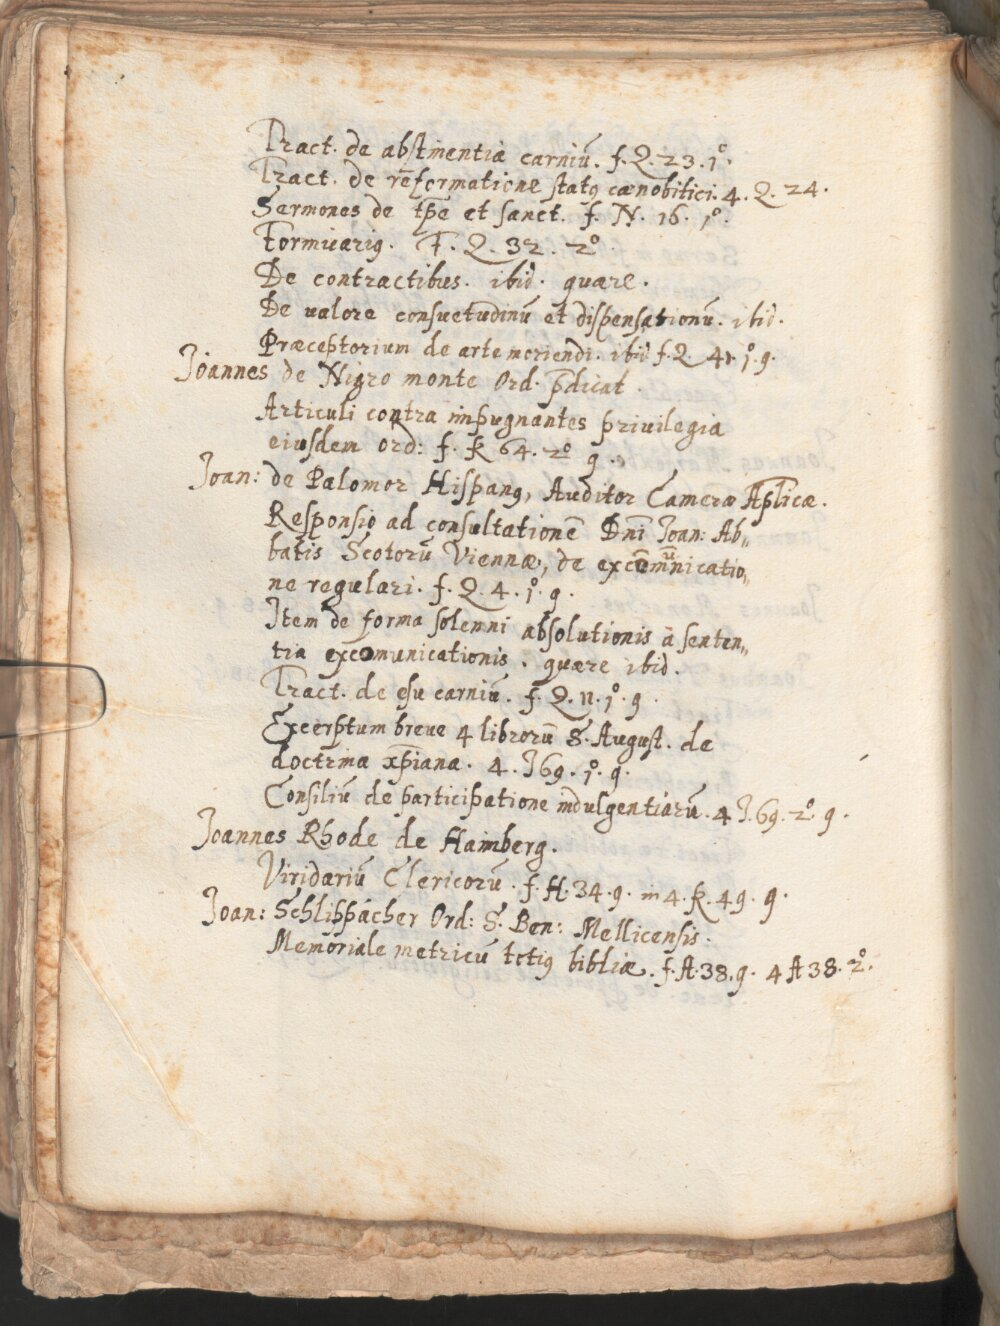 Tract. de abstinentia carniū. f. Q. 23. 1º.
Tract. de rēformatione statꝯ cænobitici. 4. Q. 24.
Sermones de tp̄e et sanct. f. N. 16. 1º.
Formicariꝯ. F. Q. 32. 2º
De contractibus. ibid. quære.
De ualore consuetudinū et dispensationū. ibid.
Præceptorium de arte moriendi. ibid f. Q. 41. 1º. g.
Joannes de Nigro monte Ord. p̄dicat.
Articuli contra impugnantes priuilegia
eiusdem ord: f. K 64. 2º g.
Joan: de Palomor Hispanꝯ, Auditor Cameræ Ap̄licæ.
Responsio ad consultationē Dn̄i Joan: Ab„
batis Scotorū Viennæ, de excōmūnicatio„
ne regulari. f. Q. 4. 1º. g.
Item de forma solenni absolutionis à senten„
tia excomunicationis. quære ibid.
Tract. de esu carniū. f. Q. 11. 1º. g.
Excerptum breue 4 librorū S. August. de
doctrina xp̄iana. 4. J 69. 1º. g.
Consiliū de participatione indulgentiarū. 4 J. 69. 2º g.
Joannes Rhode de Hamberg.
Viridariū Clericorū. f. H. 34. g. in 4. K. 49. g.
Joan: Schlippacher Ord: S. Ben: Mellicensis.
Memoriale metricū totiꝯ bibliæ. f. A. 38. g. 4 A 38. 2º.